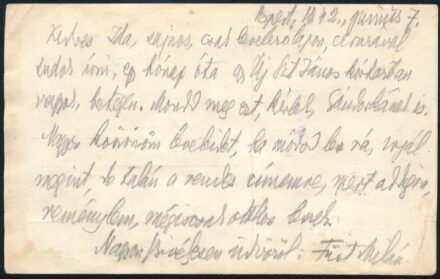 Bpest, 1942., június 7.
Kedves Ida, sajnos, csak levelezőlapon, ceruzával
tudok írni, egy hónap óta az Új Szt János kórházban
vagyok, betegen. Mondd meg ezt, kérlek, Sándoréknak is.
Nagyon köszönöm leveleidet, ha módod lesz rá, írjál
megint, de talán a rendes címemre, mert addigra,
remélhetem, mégiscsak otthon leszek.
Nagyon szívélyesen üdvözöl: Füst Milán